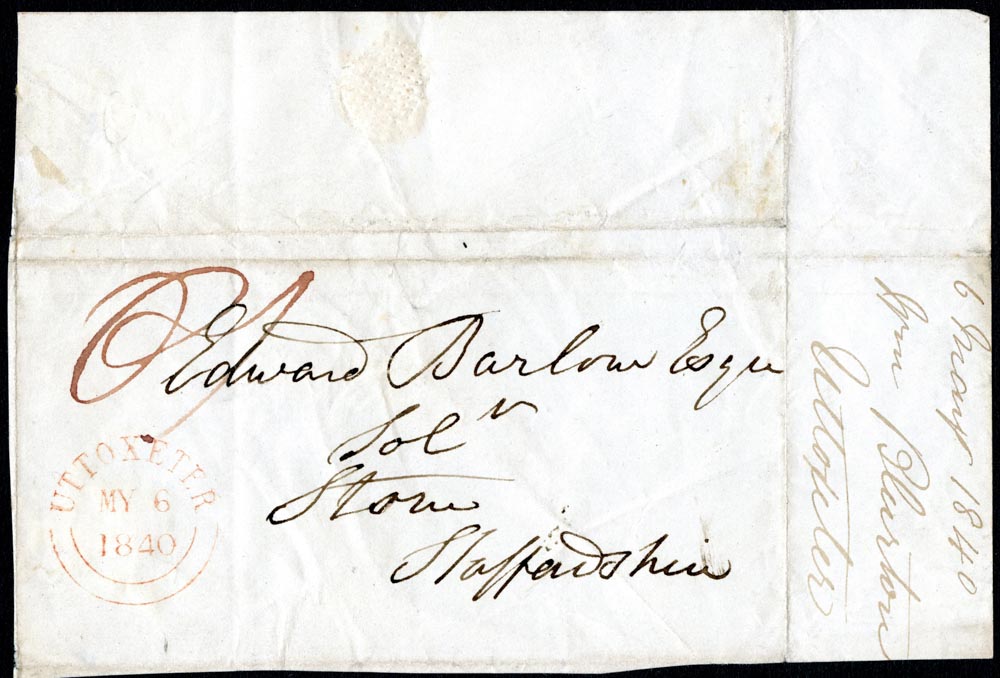 Edward Barlow Esqre
Solr
Stone
Staffordshire
UTTOXETER
MY 6
1840
6 May 1840
Blurton
Uttoxeter